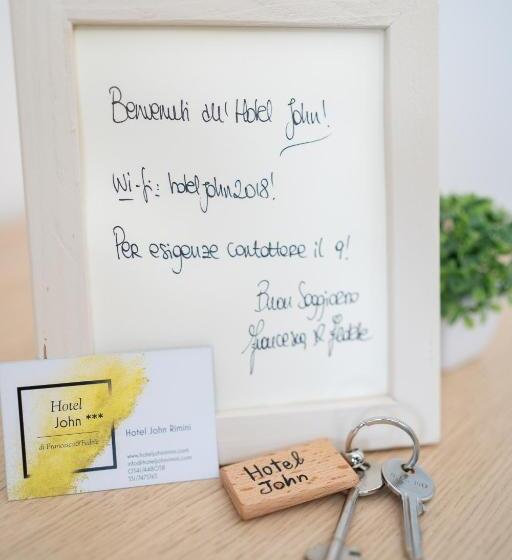 Benvenuti all' Hotel John!
Wi-fi: hoteljohn2018!
Per esigenze contattare il 9!
Buon Soggiorno
Francesca & Fedele
Hotel
John ***
di Francesca e Fedele
Hotel John Rimini
www.hoteljohnrimini.com
info@hoteljohnrimini.com
Hotel
John